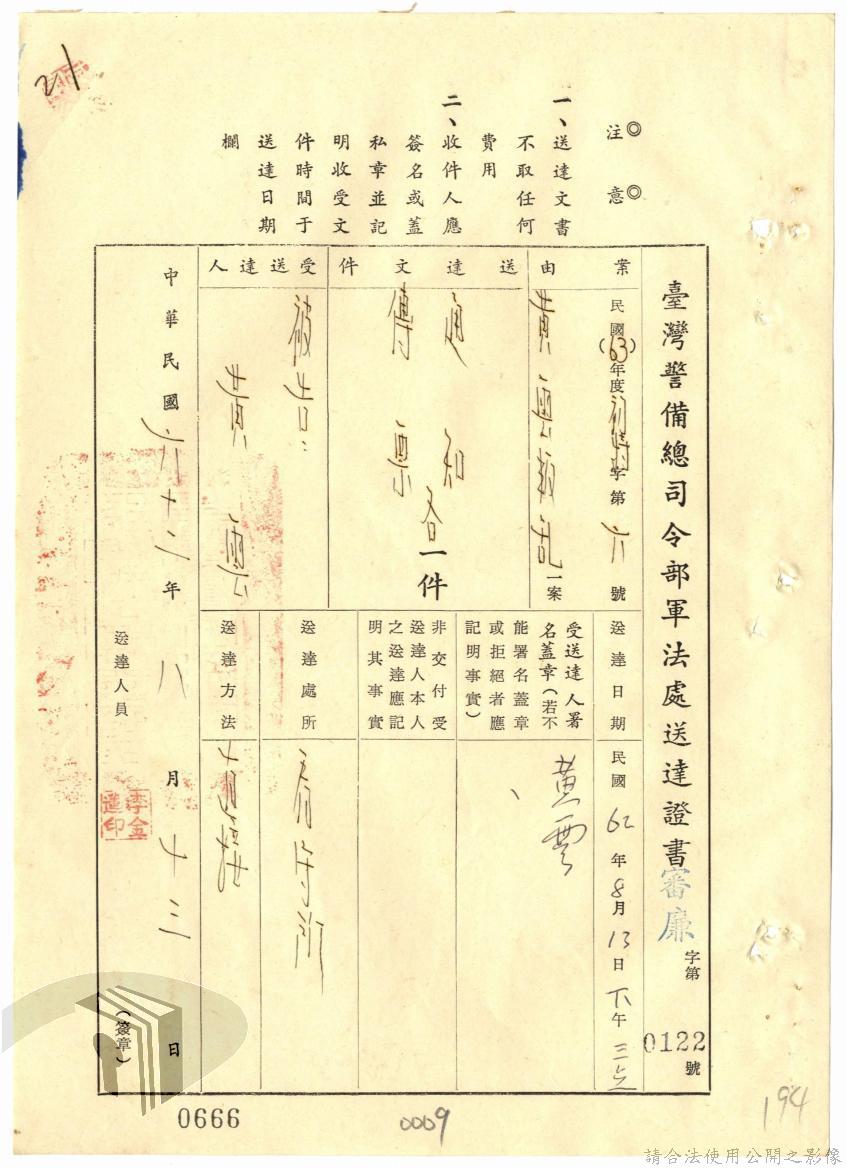 21
◎注意◎
一、送達文書
不取任何
費用
二、收件人應
簽名或蓋
私章並記
明收受文
件時間于
送達日期
欄
臺灣警備總司令部軍法處送達證書審廉字第0122號
案由
民國(63)年度初特字第六號
黃雲叛亂一案
送達文件
通知
傳票
各一件
受送達人
被告:
黃雲
送達日期
民國62年8月13日下午三時
受送達人署
名蓋章(若不
能署名蓋章
或拒絕者應
記明事實)
黃雲
非交付受
送達人本人
之送達應記
明其事實
送達處所
看守所
送達方法
直接
中華民國六十二年八月十三日
送達人員
李金
印
(簽章)
0666
0009
194
請合法使用公開之影像